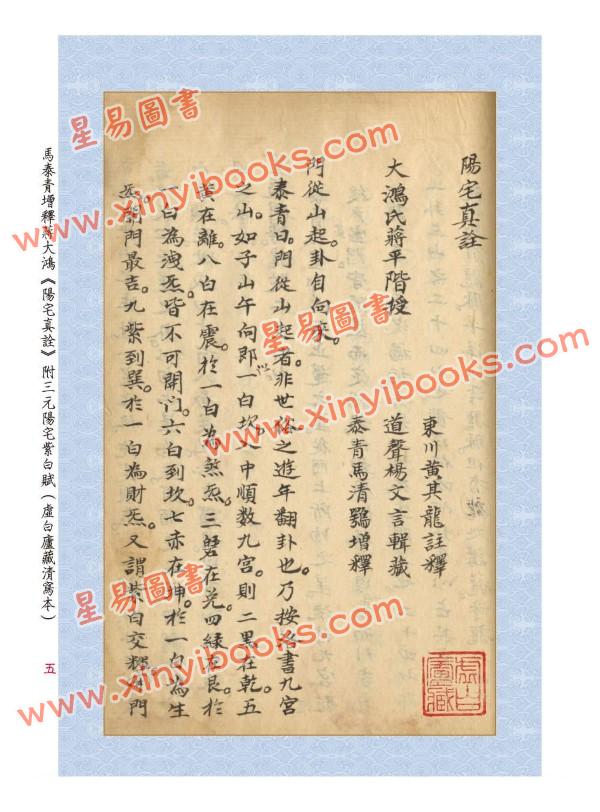 陽宅真詮
東川黃其龍註釋
大鴻氏蔣平階授
道聲楊文言輯藏
泰青馬清鶚增釋
門從山起卦自向來。
泰青曰。門從山起者。非世俗之遊年翻卦也。乃按洛書九宮
之山。如子山午向。即以一白坎入中順數九宮。則二黑在乾。五
黃在離。八白在震。於一白為煞炁。三碧在兌。四綠在艮。於
一白為洩炁。皆不可開門。六白到坎。七赤在坤。於一白為生
炁。開門最吉。九紫到巽。於一白為財炁。又謂紫白交輝。開門
虛白廬藏
馬泰青增釋蔣大鴻《陽宅真詮》附三元陽宅紫白賦(虛白廬藏清寫本)
五
星易圖書
www.xinyibooks.com
星易圖書
www.xinyibooks.com
星易圖書
www.xinyibooks.com
星易圖書
www.xinyibooks.com